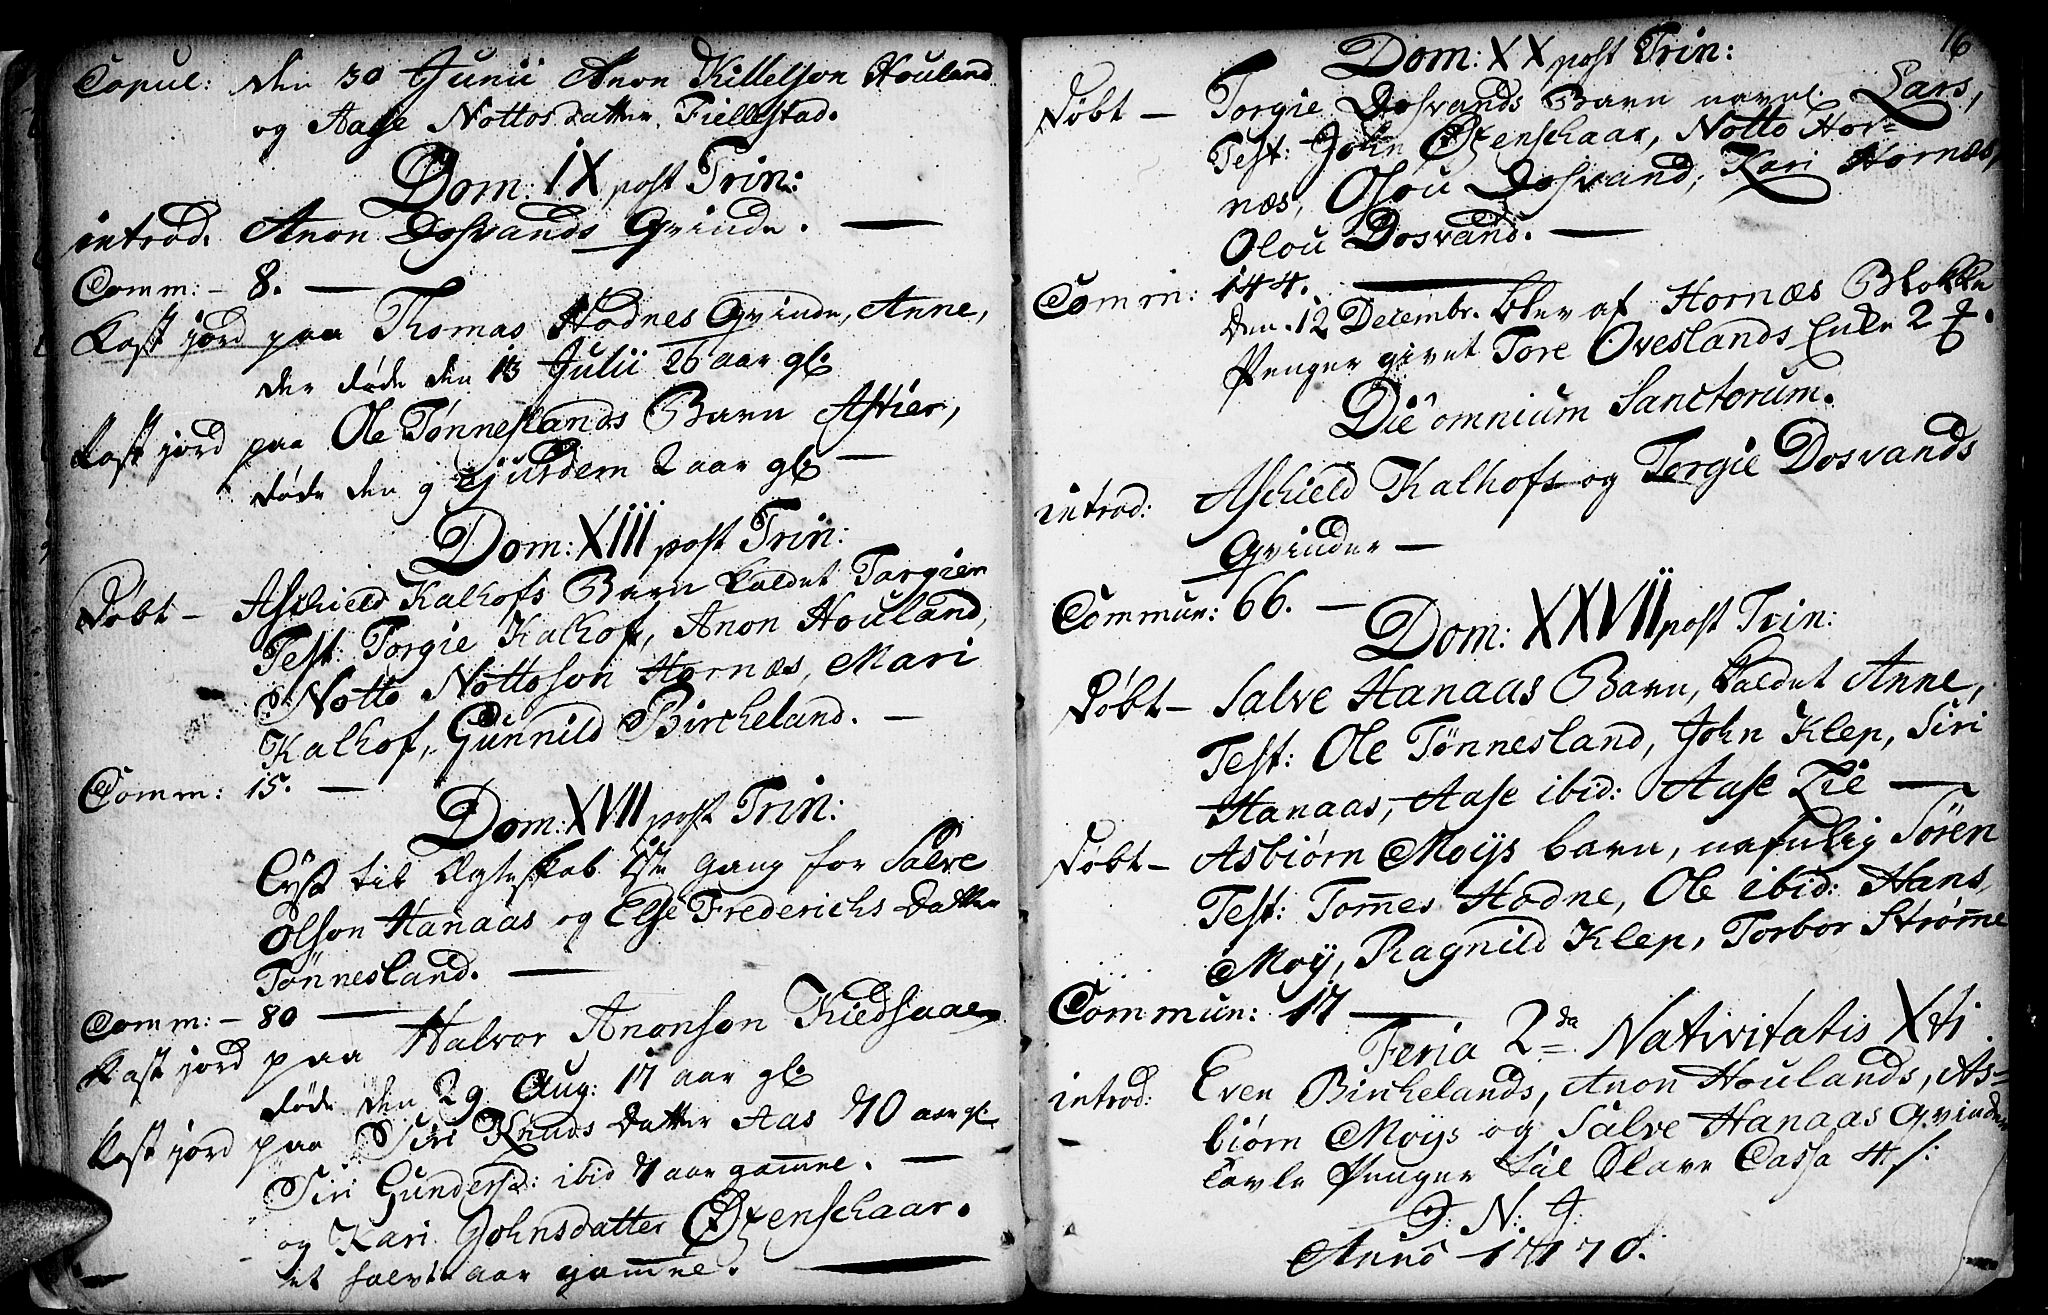 Copul: den 30 Junii Anon Killelson Houland
og Aase Nottos datter Fiellestad.
Dom: IX post Trin:
introd. Anon Dosvands Qvinde. —
Comm: – 8. —
Kast jord paa Thomas Hodnes Qvinde, Anne,
der døde den 13 Julii 26 aar gl:
Kast jord paa Ole Tønneslands Barn Astier,
døde den 9 ejusdem 2 aar gl: —
Dom: XIII post Trin:
Døbt – Aschield Kalhofs Barn kaldet Torgier
Test: Torgie Kalhof, Anon Houland,
Notto Nottoson Hornæs, Mari
Kalhof, Gunnild Bircheland. —
Comm: 15. —
Dom: XVII post Trin:
Lyst til Ægteskab 1ste gang for Salve
Olson Hanaas og Else Frederichs Datter
Tønnesland. —
Comm: – 80 —
Kast jord paa Halvor Anonson Kiedsaae
døde den 29 Aug: 17 aar gl:
Kast jord paa Siri Knuds Datter Aas 70 aar gl:
Siri Gundersd: ibid 7 aar gamle. —
og Kari Johnsdatter Øxenschaar.
et halvt aar gamle. —
16
Dom: XX post Trin:
Døbt — Torgie Dosvands Barn navnl. Lars,
Test: John Øxenschaar, Notto Hor=
næs, Olou Dosvand, Kari Hornæs,
Olou Dosvand. —
Comm: 144. —
Den 12 Decembr. blev af Hornæs Blokke
Penger givet Tore Oveslands Enke 2
Die omnium Sanctorum.
introd: Aschield Kalhofs og Torgie Dosvands
Qvinder —
Commun: 66. —
Dom: XXVII post Trin:
Døbt – Salve Hanaas Barn, kaldet Anne,
Test: Ole Tønnesland, John Klep, Siri
Hanaas, Aase ibid: Aase Lie —
Døbt – Asbiørn Moijs barn, nafnlig Sören
Test: Tom̄es Hodne, Ole ibid: Hans
Moij, Ragnild Klep, Torbor Strøm̄e
Commun: 17 —
Feria 2da Nativitatis Xti.
introd: Even Birchelands, Anon Houlands, As=
biørn Moijs og Salve Hanaas Qvinder
Tavle Penger Cassa 4 s:
J: N: J:
Anno 1770.